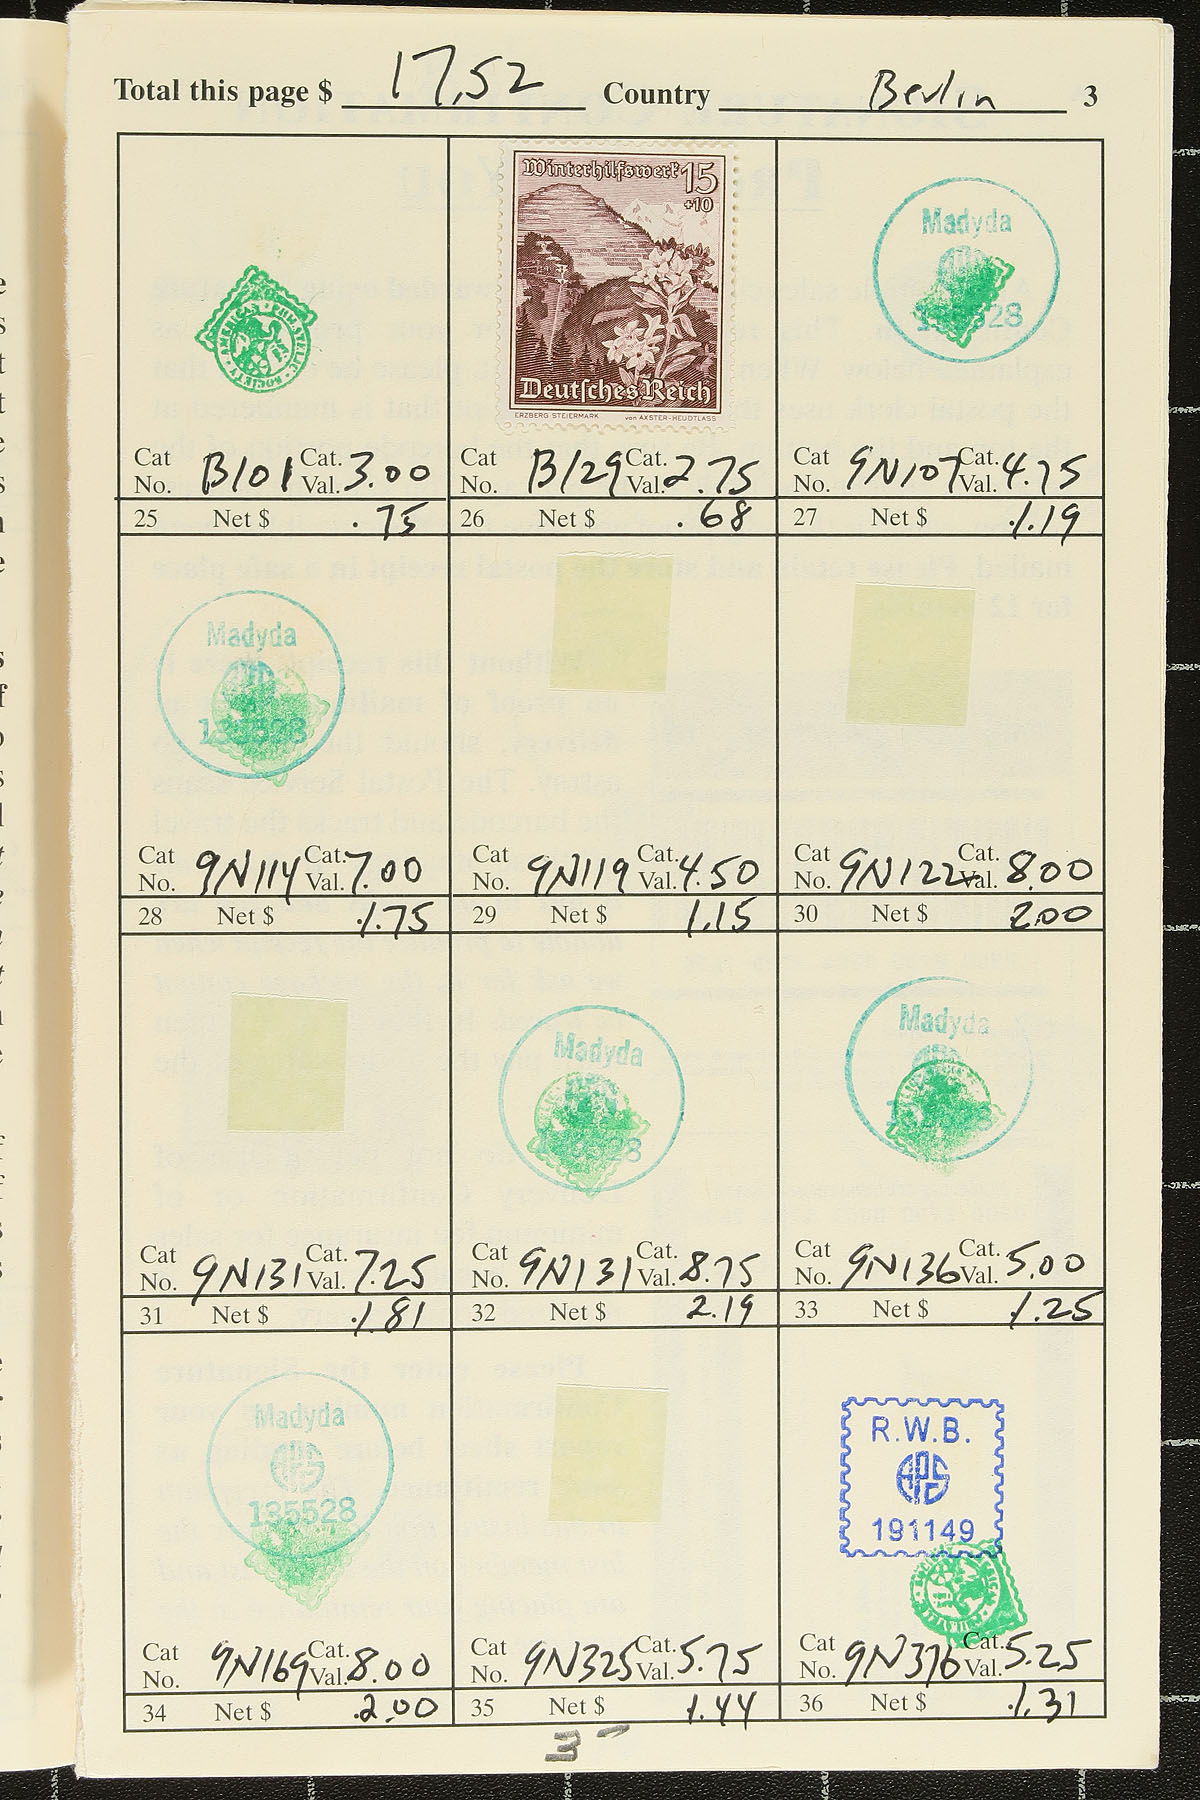 Total this page $ 17,52 Country Berlin 3
Winterhilfswerk 15
+10
Deutsches Reich
ERZBERG STEIERMARK von AXSTER-HEUDTLASS
AMERICAN PHILATELIC SOCIETY
Madyda
Cat No. B101 Cat. Val. 3.00
25 Net $ .75
Cat No. B129 Cat. Val. 2.75
26 Net $ .68
Cat No. 9N107 Cat. Val. 4.75
27 Net $ 1.19
Madyda
135528
Cat No. 9N114 Cat. Val. 7.00
28 Net $ 1.75
Cat No. 9N119 Cat. Val. 4.50
29 Net $ 1.15
Cat No. 9N122 Cat. Val. 8.00
30 Net $ 2.00
Madyda
Madyda
Cat No. 9N131 Cat. Val. 7.25
31 Net $ 1.81
Cat No. 9N131 Cat. Val. 8.75
32 Net $ 2.19
Cat No. 9N136 Cat. Val. 5.00
33 Net $ 1.25
Madyda
APS
135528
R.W.B.
APS
191149
Cat No. 9N169 Cat. Val. 8.00
34 Net $ 2.00
Cat No. 9N325 Cat. Val. 5.75
35 Net $ 1.44
Cat No. 9N376 Cat. Val. 5.25
36 Net $ 1.31
3-